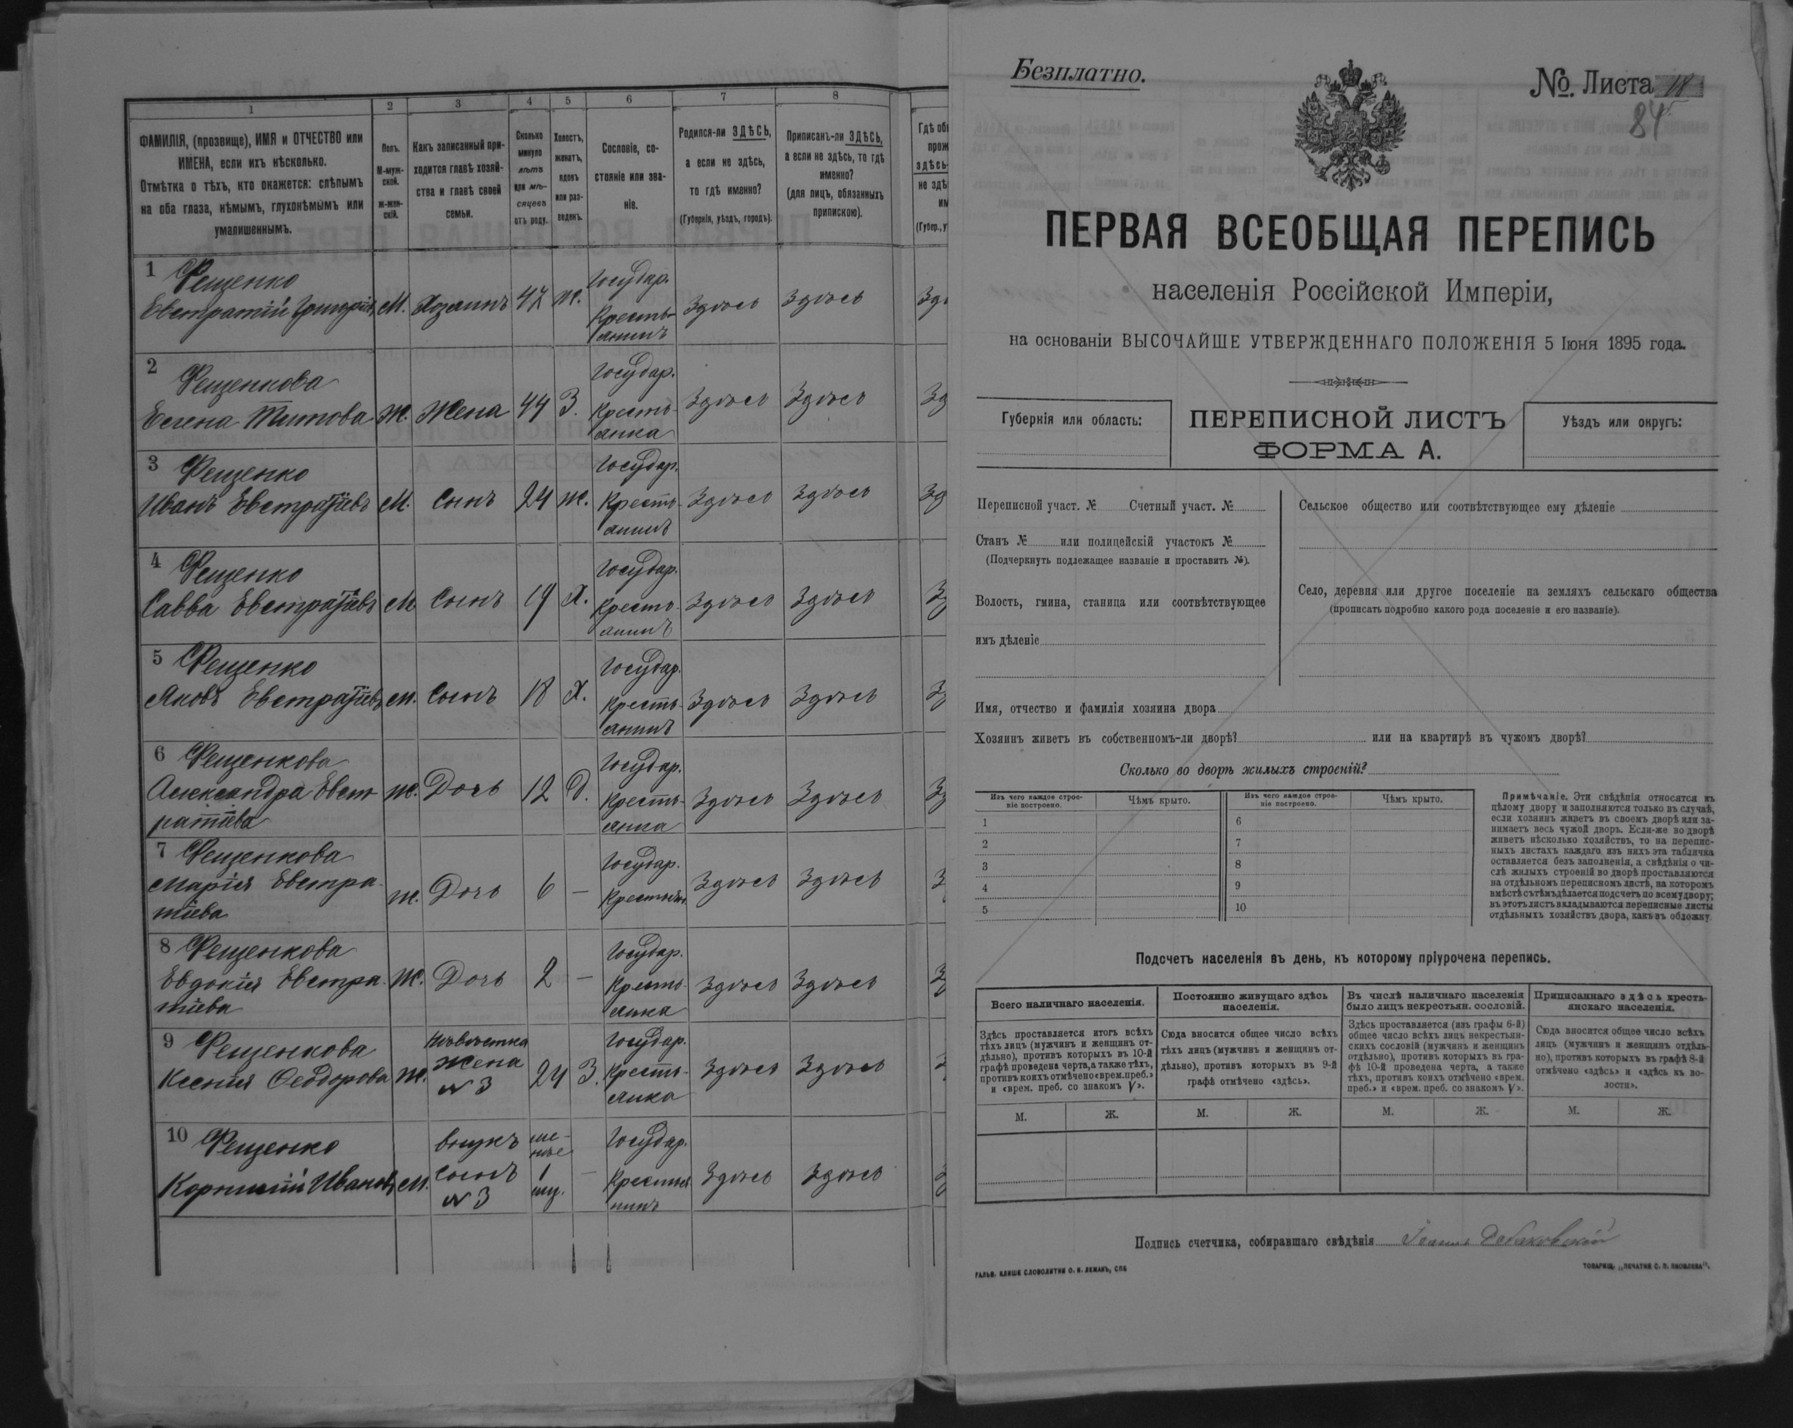 1
2
3
4
5
6
7
8
ФАМИЛІЯ, (прозвище), ИМЯ и ОТЧЕСТВО или
ИМЕНА, если ихъ нѣсколько.
Отмѣтка о тѣхъ, кто окажется: слѣпымъ
на оба глаза, нѣмымъ, глухонѣмымъ или
умалишеннымъ.
Полъ.
М-муж-
ской.
ж-жен-
скій.
Какъ записанный при-
ходится главѣ хозяй-
ства и главѣ своей
семьи.
Сколько
минуло
лѣтъ
или мѣ-
сяцевъ
отъ роду.
Холостъ,
женатъ,
вдовъ
или раз-
веденъ.
Сословіе, со-
стояніе или зва-
ніе.
Родился-ли ЗДѢСЬ,
а если не здѣсь,
то гдѣ именно?
(Губернія, уѣздъ, городъ).
Приписанъ-ли ЗДѢСЬ,
а если не здѣсь, то гдѣ
именно?
(для лицъ, обязанныхъ
припискою).
1 Фещенко
Евстратій Григорьев М. Хозяинъ 47 ж. Государ. Крестьянинъ Здѣсь Здѣсь
2 Фещенкова
Елена Титова Ж. Жена 44 З. Государ. Крестьянка Здѣсь Здѣсь Зд
3 Фещенко
Иванъ Евстратіевъ М. Сынъ 24 ж. Государ. Крестьянинъ Здѣсь Здѣсь Зд
4 Фещенко
Савва Евстратіевъ М Сынъ 19 Х. Государ. Крестьянинъ Здѣсь Здѣсь
5 Фещенко
Яковъ Евстратіевъ М. Сынъ 18 Х. Государ. Крестьянинъ Здѣсь Здѣсь
6 Фещенкова
Александра Евстратіева ж. Дочь 12 Д. Государ. Крестьянка Здѣсь Здѣсь
7 Фещенкова
Марія Евстратіева ж. Дочь 6 — Государ. Здѣсь Здѣсь
8 Фещенкова
Евдокія Евстратіева Ж. Дочь 2 — Государ. Крестьянка Здѣсь Здѣсь
9 Фещенкова
Ксенія Ѳеодорова Ж. Невѣстка Жена N 3 24 З. Государ. Крестьянка Здѣсь Здѣсь
10 Фещенко
Корнилій Иванов М. внукъ сынъ N 3 — Государ. Здѣсь Здѣсь
Безплатно.
№. Листа 18
84
ПЕРВАЯ ВСЕОБЩАЯ ПЕРЕПИСЬ
населенія Россійской Имперіи,
на основаніи ВЫСОЧАЙШЕ УТВЕРЖДЕННАГО ПОЛОЖЕНІЯ 5 Іюня 1895 года.
Губернія или область:
ПЕРЕПИСНОЙ ЛИСТЪ
ФОРМА А.
Уѣздъ или округъ:
Переписной участ. № Счетный участ. №
Станъ № или полицейскій участокъ №
(Подчеркнуть подлежащее названіе и проставить №).
Волость, гмина, станица или соотвѣтствующее
имъ дѣленіе
Сельское общество или соотвѣтствующее ему дѣленіе
Село, деревня или другое поселеніе на земляхъ сельскаго общества
(прописать подробно какого рода поселеніе и его названіе).
Имя, отчество и фамилія хозяина двора
Хозяинъ живетъ въ собственномъ-ли дворѣ? или на квартирѣ въ чужомъ дворѣ?
Сколько во дворѣ жилыхъ строеній?
Изъ чего каждое строе-
ніе построено.
Чѣмъ крыто.
Изъ чего каждое строе-
ніе построено.
Чѣмъ крыто.
1 6
2 7
3 8
4 9
5 10
Примѣчаніе. Эти свѣдѣнія относятся къ
цѣлому двору и заполняются только въ случаѣ,
если хозяинъ живетъ въ своемъ дворѣ или за-
нимаетъ весь чужой дворъ. Если-же во дворѣ
живетъ нѣсколько хозяйствъ, то на перепис-
ныхъ листахъ каждаго изъ нихъ эта табличка
оставляется безъ заполненія, а свѣдѣнія о чи-
слѣ жилыхъ строеній во дворѣ проставляются
на отдѣльномъ переписномъ листѣ, на которомъ
вмѣстѣ съ тѣмъ дѣлается подсчетъ по всему двору;
въ этотъ листъ вкладываются переписные листы
отдѣльныхъ хозяйствъ двора, какъ въ обложку.
Подсчетъ населенія въ день, къ которому пріурочена перепись.
Всего наличнаго населенія.
Постоянно живущаго здѣсь
населенія.
Въ числѣ наличнаго населенія
было лицъ некрестьян. сословій.
Приписаннаго здѣсь кресть-
янскаго населенія.
Здѣсь проставляется итогъ всѣхъ
тѣхъ лицъ (мужчинъ и женщинъ от-
дѣльно), противъ которыхъ въ 10-й
графѣ проведена черта, а также тѣхъ,
противъ коихъ отмѣчено «врем. преб.»
и «врем. преб. со знакомъ V».
Сюда вносится общее число всѣхъ
тѣхъ лицъ (мужчинъ и женщинъ от-
дѣльно), противъ которыхъ въ 9-й
графѣ отмѣчено «здѣсь».
Здѣсь проставляется (изъ графы 6-й)
общее число всѣхъ лицъ некрестьян-
скихъ сословій (мужчинъ и женщинъ
отдѣльно), противъ которыхъ въ гра-
фѣ 10-й проведена черта, а также
тѣхъ, противъ коихъ отмѣчено «врем.
преб.» и «врем. преб. со знакомъ V».
Сюда вносится общее число всѣхъ
лицъ (мужчинъ и женщинъ отдѣль-
но), противъ которыхъ въ графѣ 8-й
отмѣчено «здѣсь» и «здѣсь въ во-
лости».
М. Ж. М. Ж. М. Ж. М. Ж.
Подпись счетчика, собиравшаго свѣдѣнія
ГАЛЬВ. КЛИШЕ СЛОВОЛИТНИ О. И. ЛЕМАНЪ, СПБ
ТОВАРИЩ. „ПЕЧАТНЯ С. П. ЯКОВЛЕВА“.